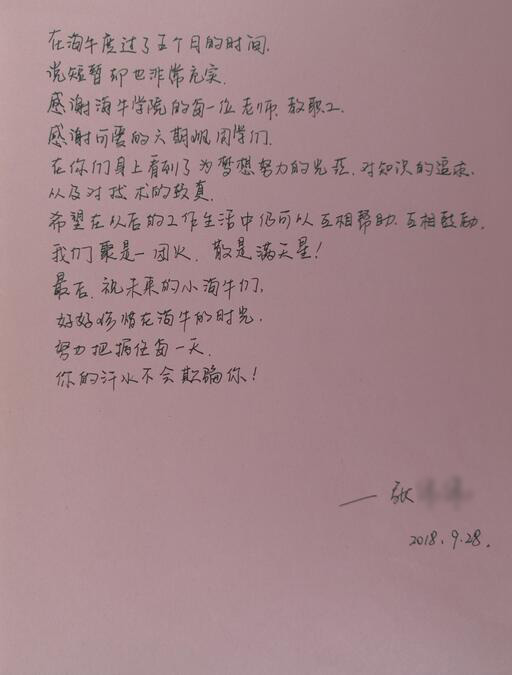 在海牛度过了五个月的时间.
说短暂却也非常充实.
感谢海牛学院的每一位老师、教职工.
感谢可爱的六期班同学们.
在你们身上看到了为梦想努力的光芒、对知识的追求、
以及对技术的较真.
希望在以后的工作生活中仍可以互相帮助、互相鼓励.
我们聚是一团火、散是满天星!
最后、祝未来的小海牛们、
好好珍惜在海牛的时光.
努力把握住每一天.
你的汗水不会欺骗你!
—张
2018.9.28.